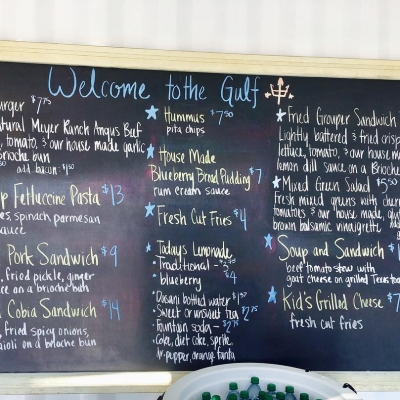 Welcome to the Gulf
urger $7.75
atural Meyer Ranch Angus Beef
, tomato, & our house made garlic
brioche bun
add bacon $1.50
p Fettuccine Pasta $13
es, spinach parmesan
sauce
Pork Sandwich $9
, fried pickle, ginger
ce on a brioche bun
d Cobia Sandwich $14
, fried spicy onions,
aioli on a brioche bun
Hummus $7.50
pita chips
House Made
Blueberry Bread Pudding $7
rum cream sauce
Fresh Cut Fries $4
Today's Lemonade
• Traditional -
• blueberry $4
• Dasani bottled water $1.50
• Sweet or unsweet tea $2.75
• Fountain soda - $2.75
• Coke, diet coke, sprite
dr. pepper, orange fanta
Fried Grouper Sandwich
Lightly battered & fried crisp
lettuce, tomato, & our house ma
lemon dill sauce on a Brioche
Mixed Green Salad $5.50
Fresh mixed greens with cherr
tomatoes & our house made, glut
brown balsamic vinaigrette
Soup and Sandwich
beef tomato stew with
goat cheese on grilled Texas toa
Kid's Grilled Cheese $7
fresh cut fries